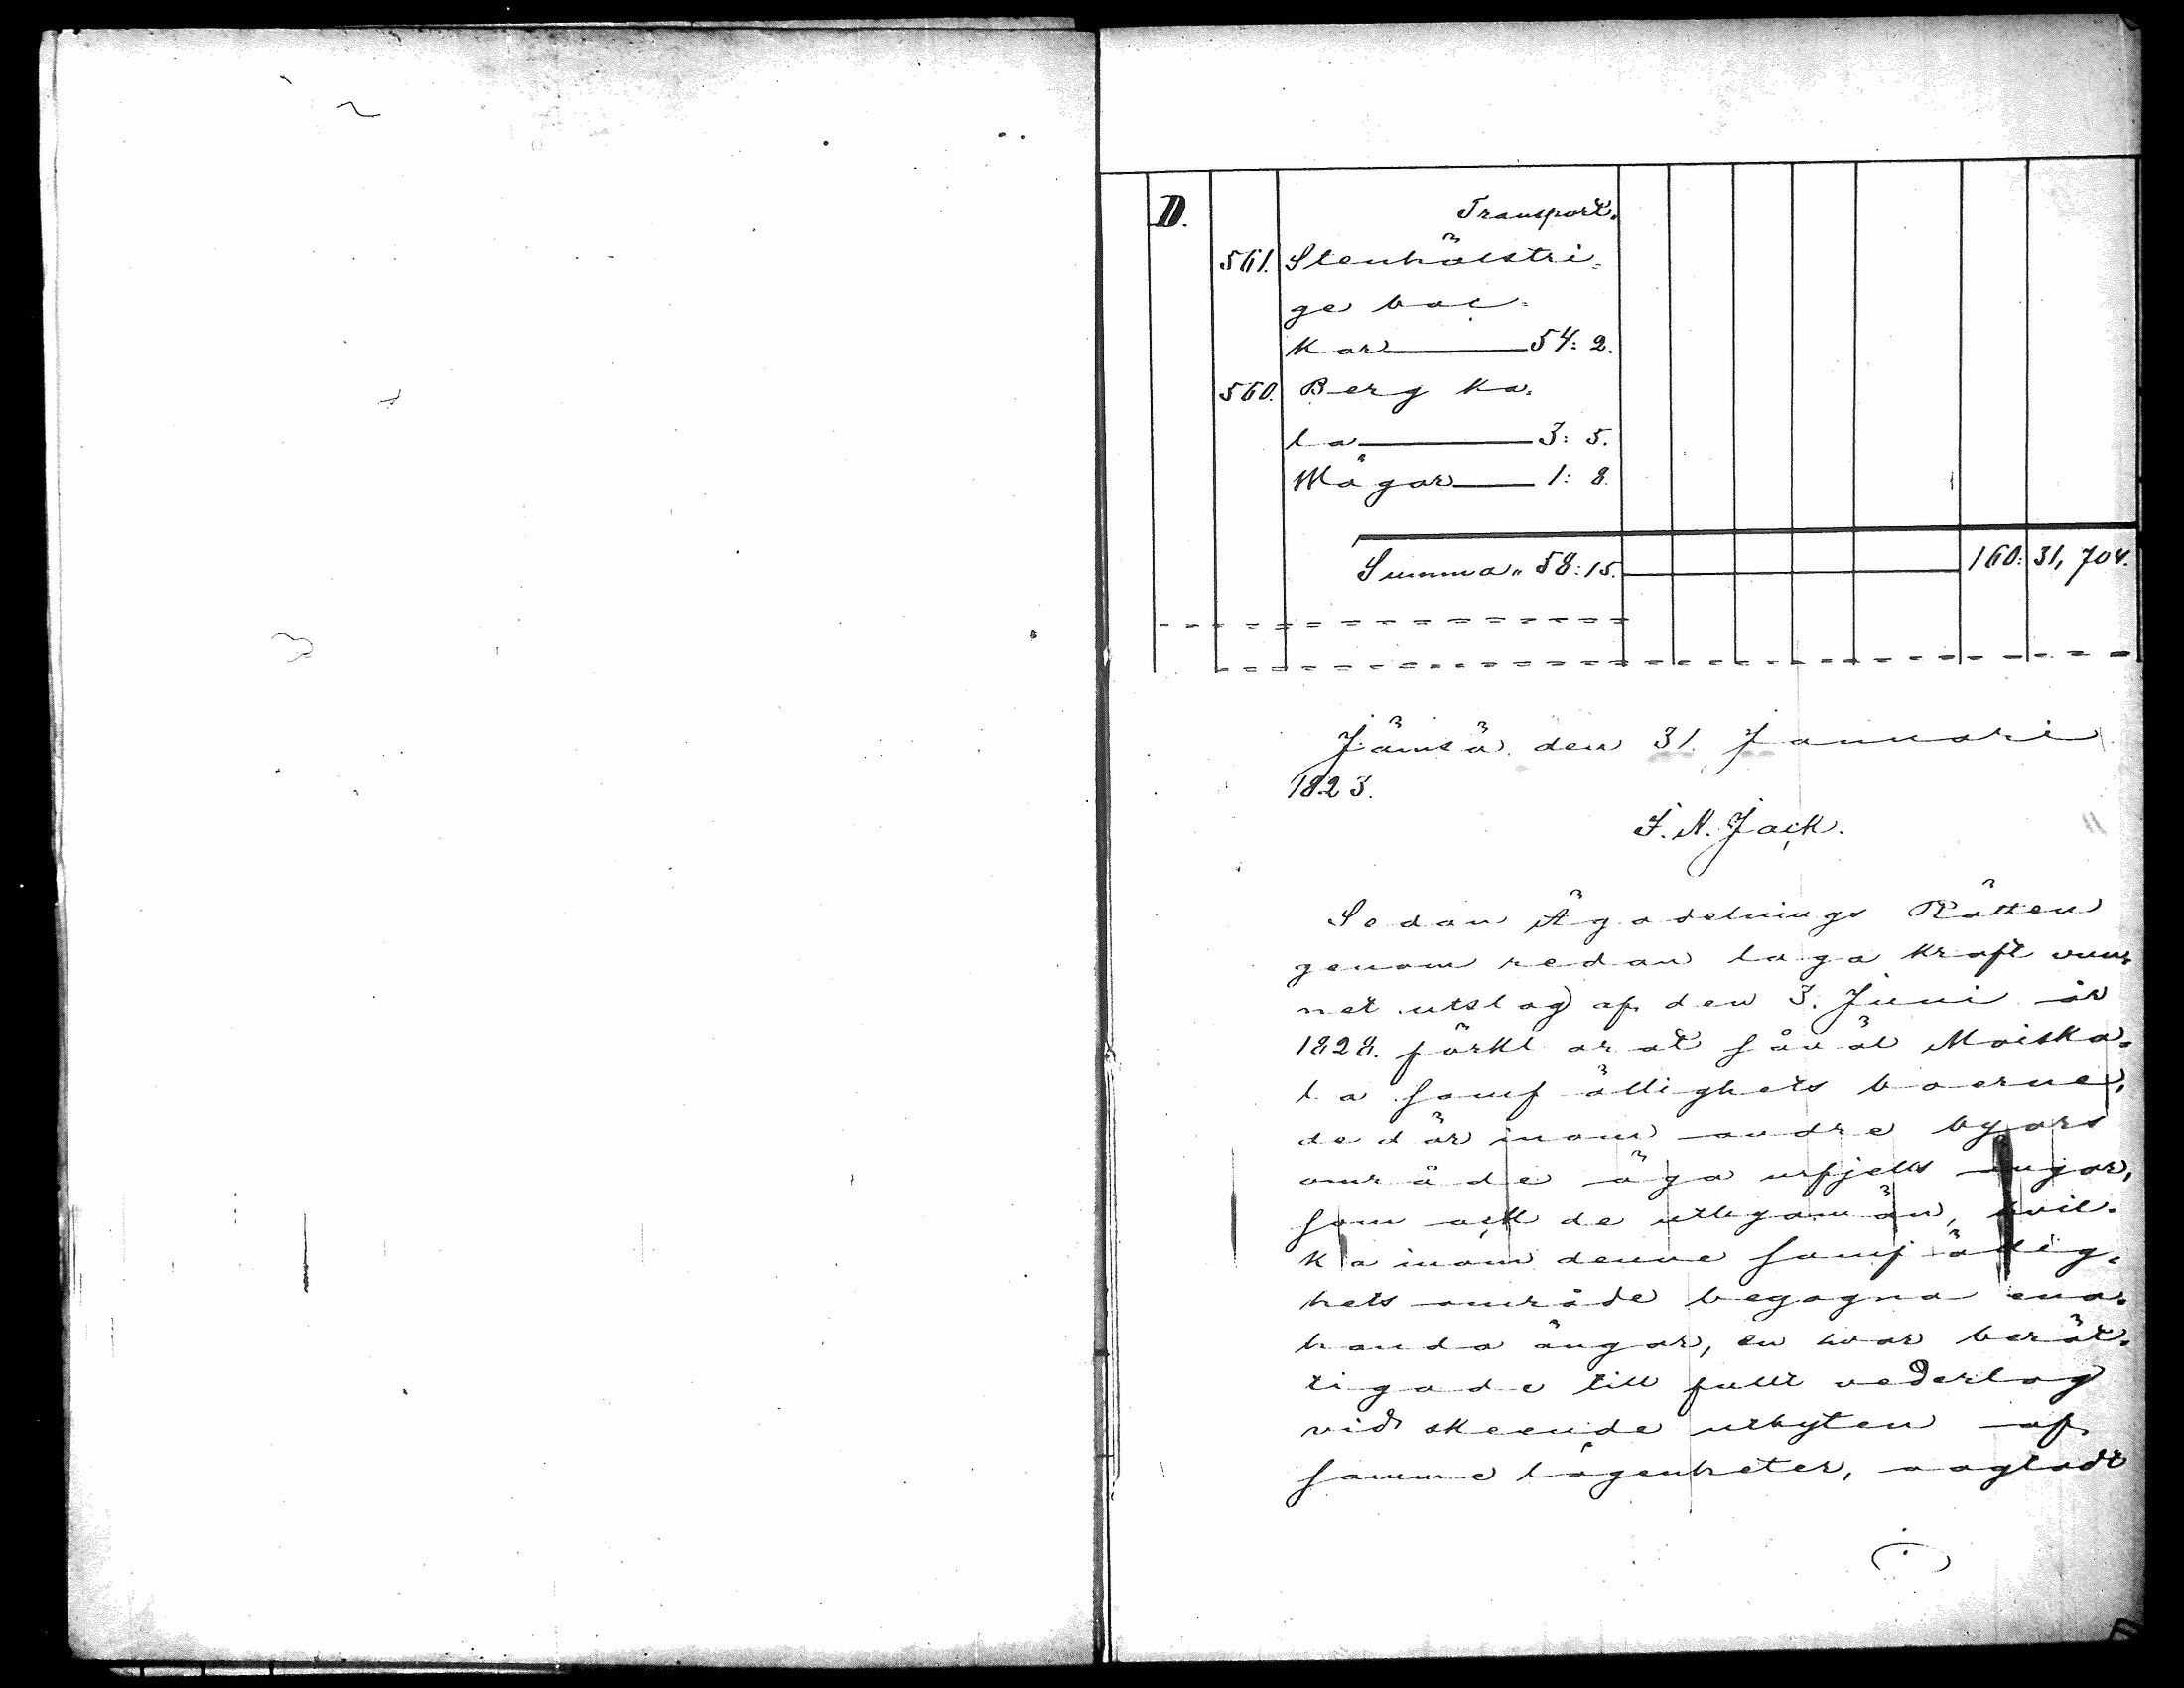 D. Transport.
561. Stenhälstri=
ge bac=
kar 54: 2.
560. Berg ka=
la 3: 5.
Mågar 1: 8.
Summa" 58:15. 160: 31, 704.
Jämsä den 31. Januari
1823.
F. N. Jack.
Sedan Ägodelnings Rätten
genom redan laga kraft vun=
net utslag af den 3. Juni år
1828. förklarat såväl Moiska=
la samfällighets boerne,
de där inom andre byars
område äga urfjells ängar,
som ock de utbyamän, hvil=
ka inom denne samfällig=
hets område begagna ena=
handa ängar, en hvar berät=
tigade till fullt vederlag
vid skeende utbyten af
samme lägenheter, oagtadt